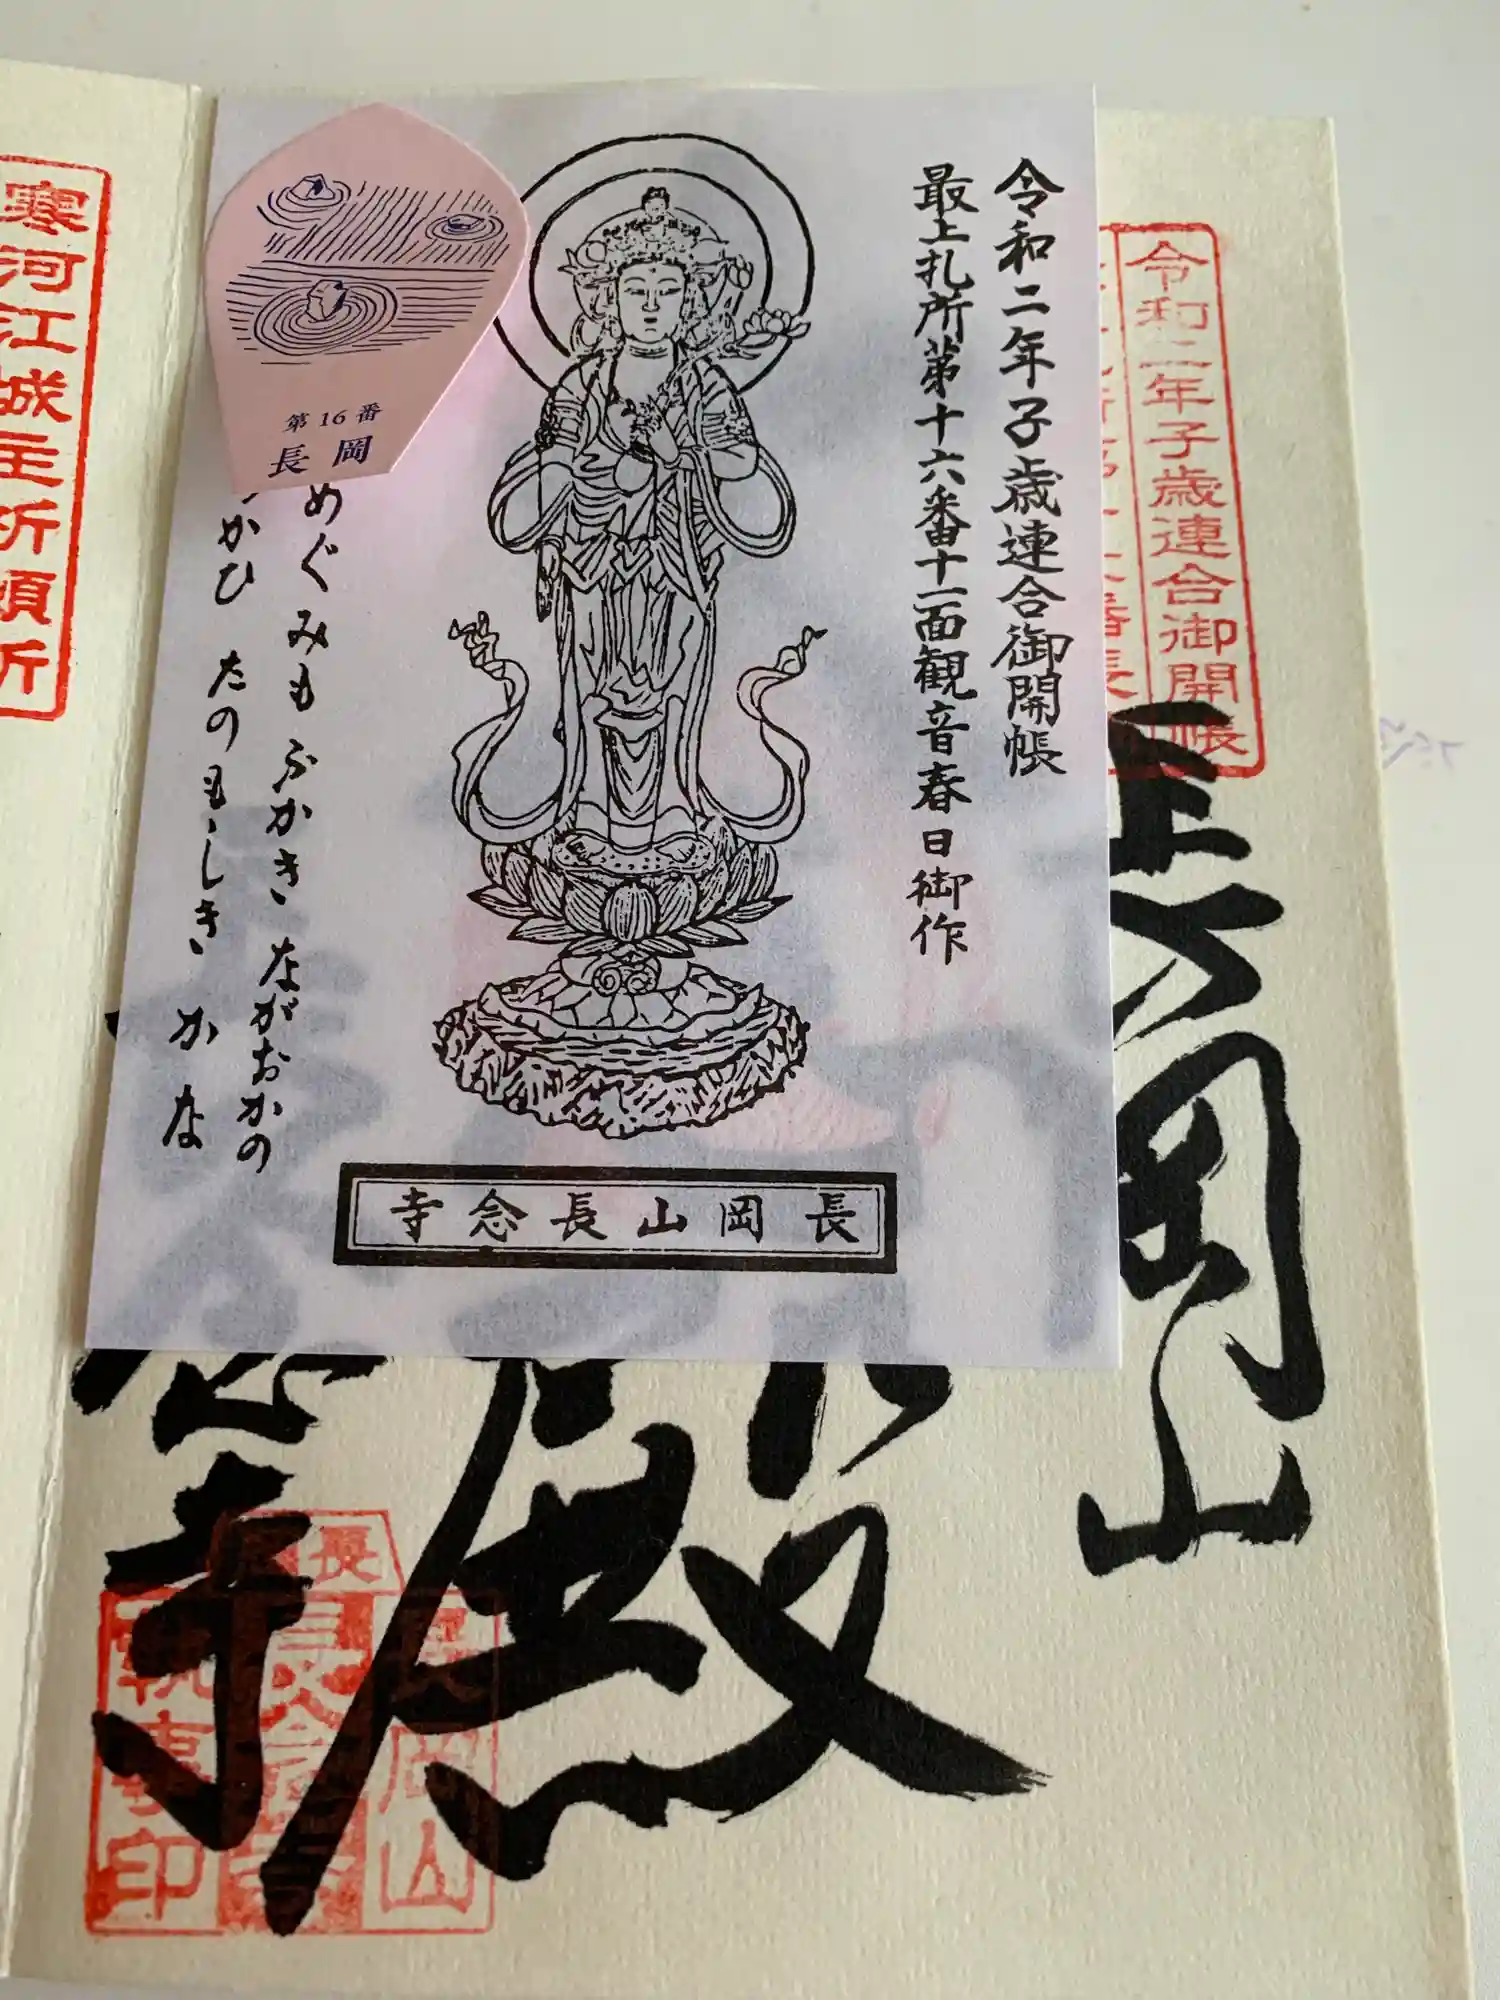 令和二年子歳連合御開帳
長岡山
令和二年子歳連合御開帳
最上札所第十六番十一面観音春日御作
第16番
長岡
めぐみも ふかき ながおかの
かひ たのもしき かな
長岡山長念寺
殿
念寺
長岡山
長念寺
執事印
寒河江城主祈願所